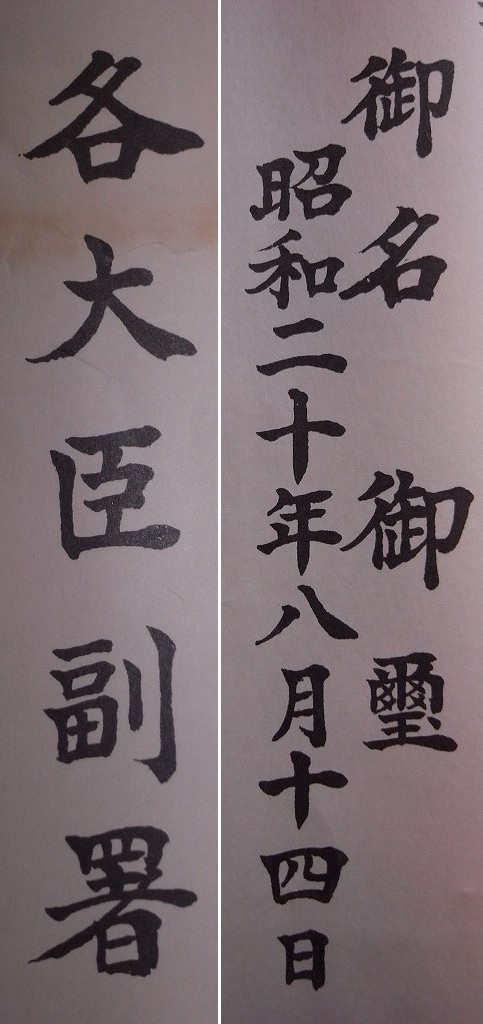 御名御璽
昭和二十年八月十四日
各大臣副署